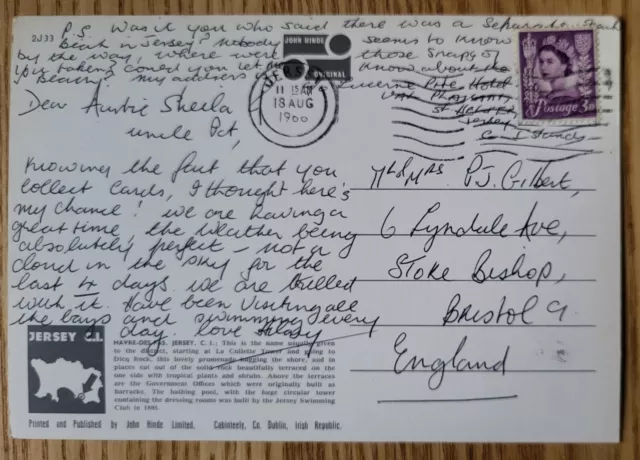 2J33
P.S. Was it you who said there was a Separate
Beach in Jersey? Nobody seems to know
by the way, where were those Snaps of
you taken? Could you let me know about the
beauty! my address Lucerne Hotel
C. I Islands
JOHN HINDE
ORIGINAL
JERSEY
11 15 AM
18 AUG
1966
Postage 3D
Dear Auntie Sheila
Uncle Pat,
Knowing the fact that you
collect cards, I thought here's
my chance! We are having a
great time, the weather being
absolutely perfect - not a
cloud in the sky for the
last 4 days. We are thrilled
with it. Have been visiting all
the bays and swimming every
day. love
Mr & Mrs. P.J. Gilbert,
6 Lyndale Ave,
Stoke Bishop,
Bristol 9.
England
JERSEY C.I.
HAVRE-DES-PAS, JERSEY, C. I.: This is the name usually given
to the district, starting at La Collette Tower and going to
Dicq Rock, this lovely promenade hugging the shore, and in
places cut out of the solid rock beautifully terraced on the
one side with tropical plants and shrubs. Above the terraces
are the Government Offices which were originally built as
barracks. The bathing pool, with the huge circular tower
containing the dressing rooms was built by the Jersey Swimming
Club in 1895.
Printed and Published by John Hinde Limited. Cabinteely, Co. Dublin, Irish Republic.